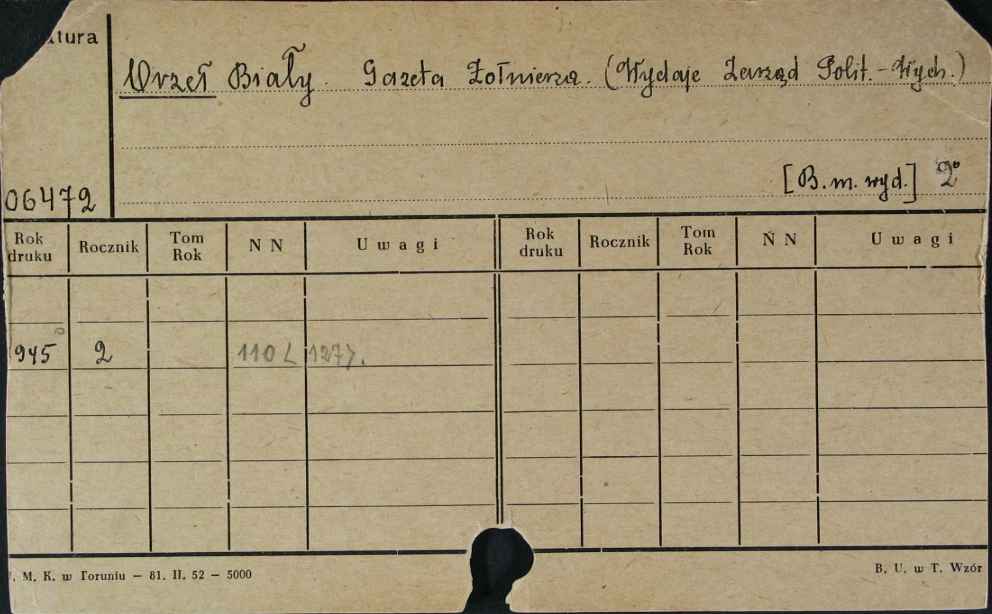 tura
Orzeł Biały. Gazeta Żołnierza. (Wydaje Zarząd Polit.-Wych.)
[B. m. wyd.] 2°
06472
Rok druku Rocznik Tom Rok N N Uwagi Rok druku Rocznik Tom Rok N N Uwagi
945 2 110 127
M. K. w Toruniu — 81. II. 52 — 5000
B. U. w T. Wzór